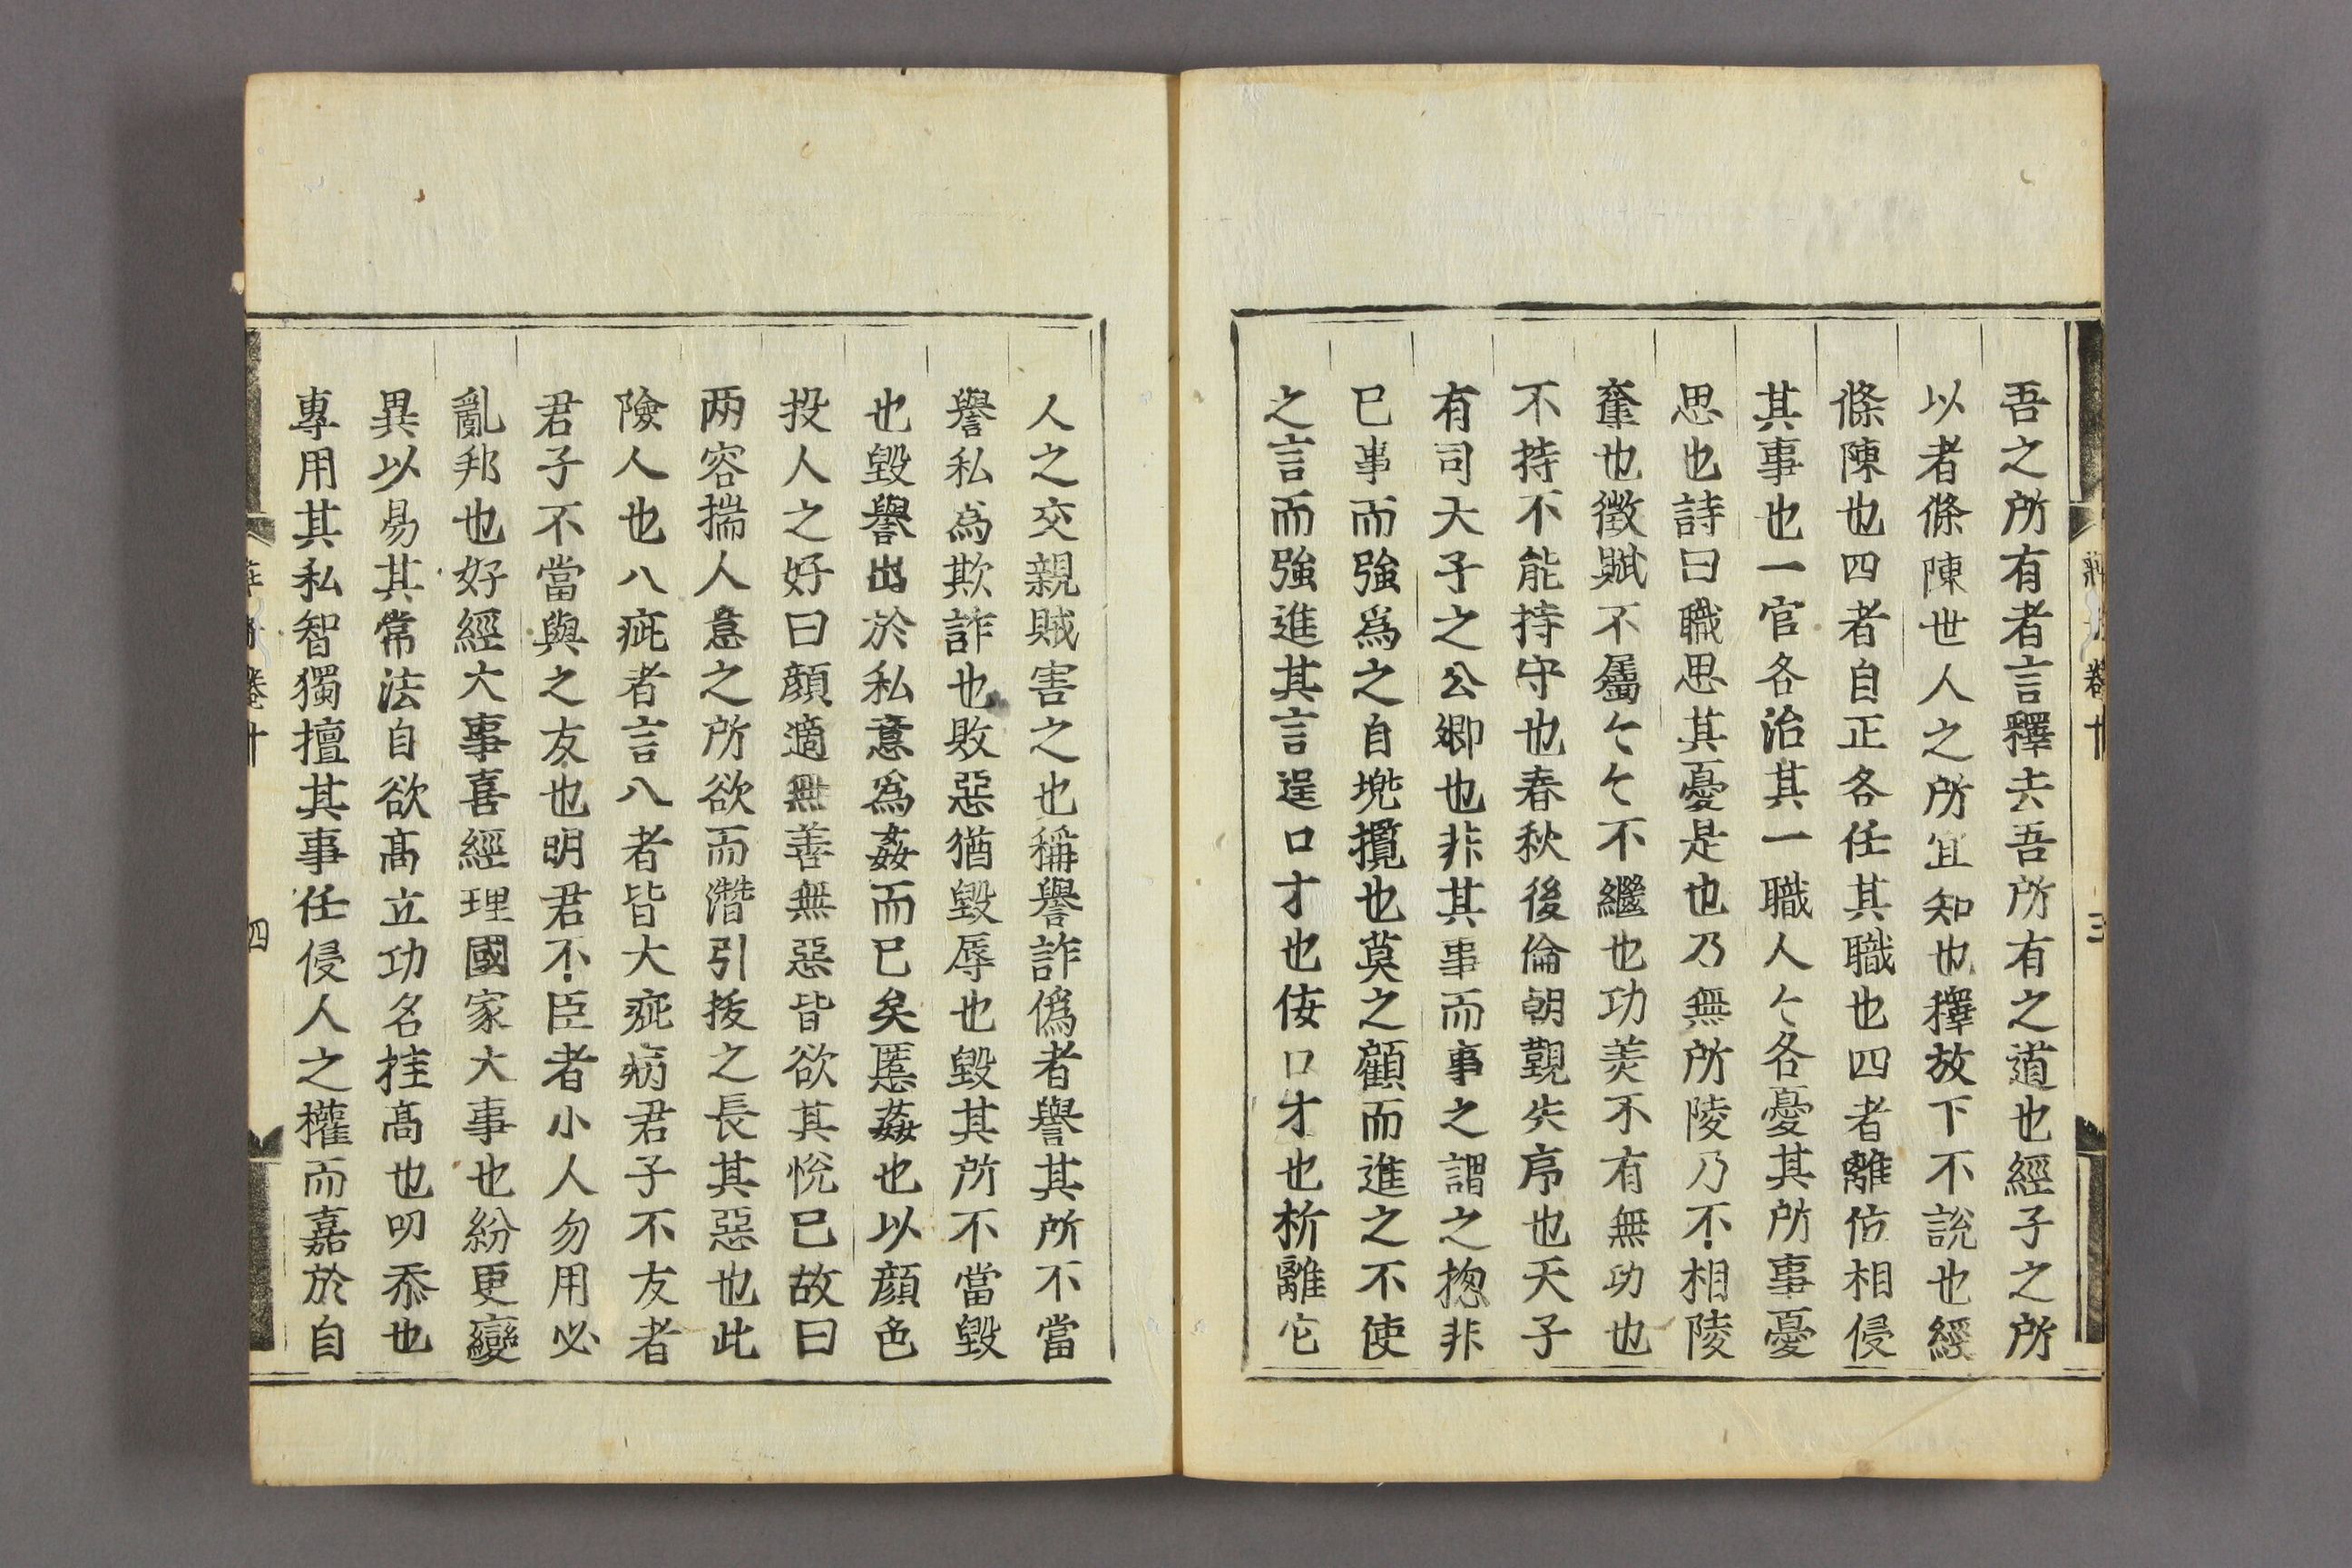 吾之所有者言釋去吾所有之道也經子之所
以者條陳世人之所宜知也釋放下不說也經
條陳也四者自正各任其職也四者離佑相侵
其事也一官各治其一職人〻各憂其所事憂
思也詩曰職思其憂是也乃無所陵乃不相陵
奪也徵賦不屬〻〻不繼也功羙不有無功也
不持不能持守也春秋後倫朝覲失序也天子
有司天子之公卿也非其事而事之謂之揔非
已事而強爲之自㨪攬也莫之顧而進之不使
之言而強進其言逞口才也侫口才也析離它
人之交親賊害之也稱譽詐僞者譽其所不當
譽私爲欺詐也敗惡猶毀辱也毀其所不當毀
也毀譽出於私意爲姦而已矣慝姦也以顔色
投人之好曰顔適無善無惡皆欲其悅已故曰
两容揣人意之所欲而潛引援之長其惡也此
險人也八疵者言八者皆大疵病君子不友者
君子不當與之友也明君不臣者小人勿用必
亂邦也好經大事喜經理國家大事也紛更變
異以易其常法自欲髙立功名挂髙也叨忝也
專用其私智獨擅其事任侵人之權而嘉於自
卷十
三
卷十
四